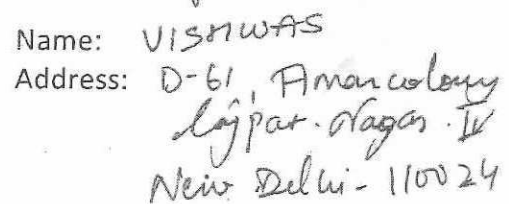 Name: VISHWAS
Address: D-61, Amar colony
Lajpat. Nagar. IV
New Delhi - 110024